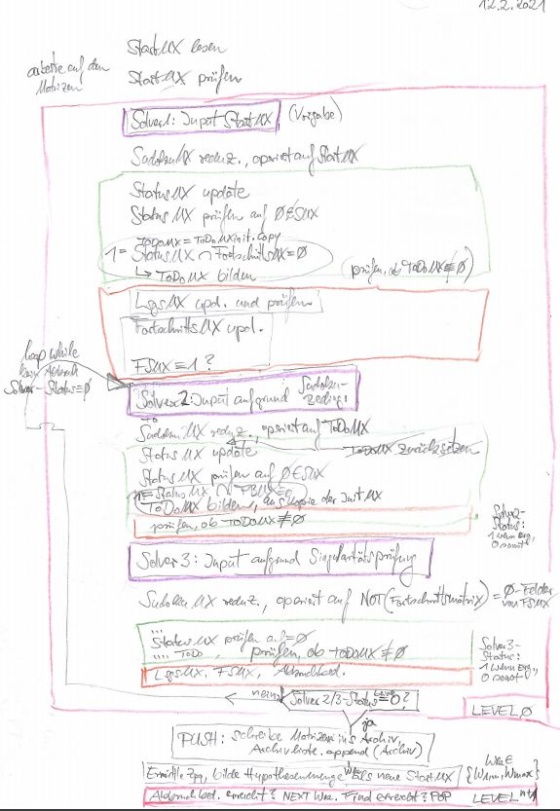 12.2.2021
StartMX lesen
StartMX prüfen
arbeite auf den
Matrizen
Solver1: Input StartMX (Vorgabe)
SudokuMX reduz., operiert auf StartMX
StatusMX update
StatusMX prüfen auf Ø∈SMX
ToDoMX = ToDoMXinit.copy
1= StatusMX ∩ FortschrittsMX=Ø
↳ ToDoMX bilden
(prüfen, ob ToDoMX≠Ø)
LsgsMX upd. und prüfen
FortschrittsMX upd.
FSMX ≡ 1?
loop while
kein Abbruch
Solver-Status=Ø
Solver2: Input aufgrund Sudoku-
Beding.
SudokuMX reduz., operiert auf ToDoMX
StatusMX update
ToDoMX zurücksetzen
StatusMX prüfen auf Ø∈SMX
1= StatusMX ∩
ToDoMX bilden,
prüfen, ob ToDoMX≠Ø
Solver2-
Status:
1 wenn erg.,
0 sonst
Solver3: Input aufgrund Singularitätsprüfung
SudokuMX reduz., operiert auf NOT(Fortschrittsmatrix) = Ø-Felder
von FSMX
...
StatusMX prüfen auf=Ø
.... ToDo prüfen, ob ToDoMX≠Ø
LsgsMX, FSMX, Abbruchbed.
Solver3-
Status:
1 wenn erg.,
0 sonst
nein
Solver2/3-Status=0?
LEVEL Ø
ja
PUSH: schreibe Matrizen ins Archiv,
Archivliste.append(Archiv)
bilde Hypothesenmenge als neue StartMX
Abbruchbed. erreicht? NEXT erreicht? POP
LEVEL n+1